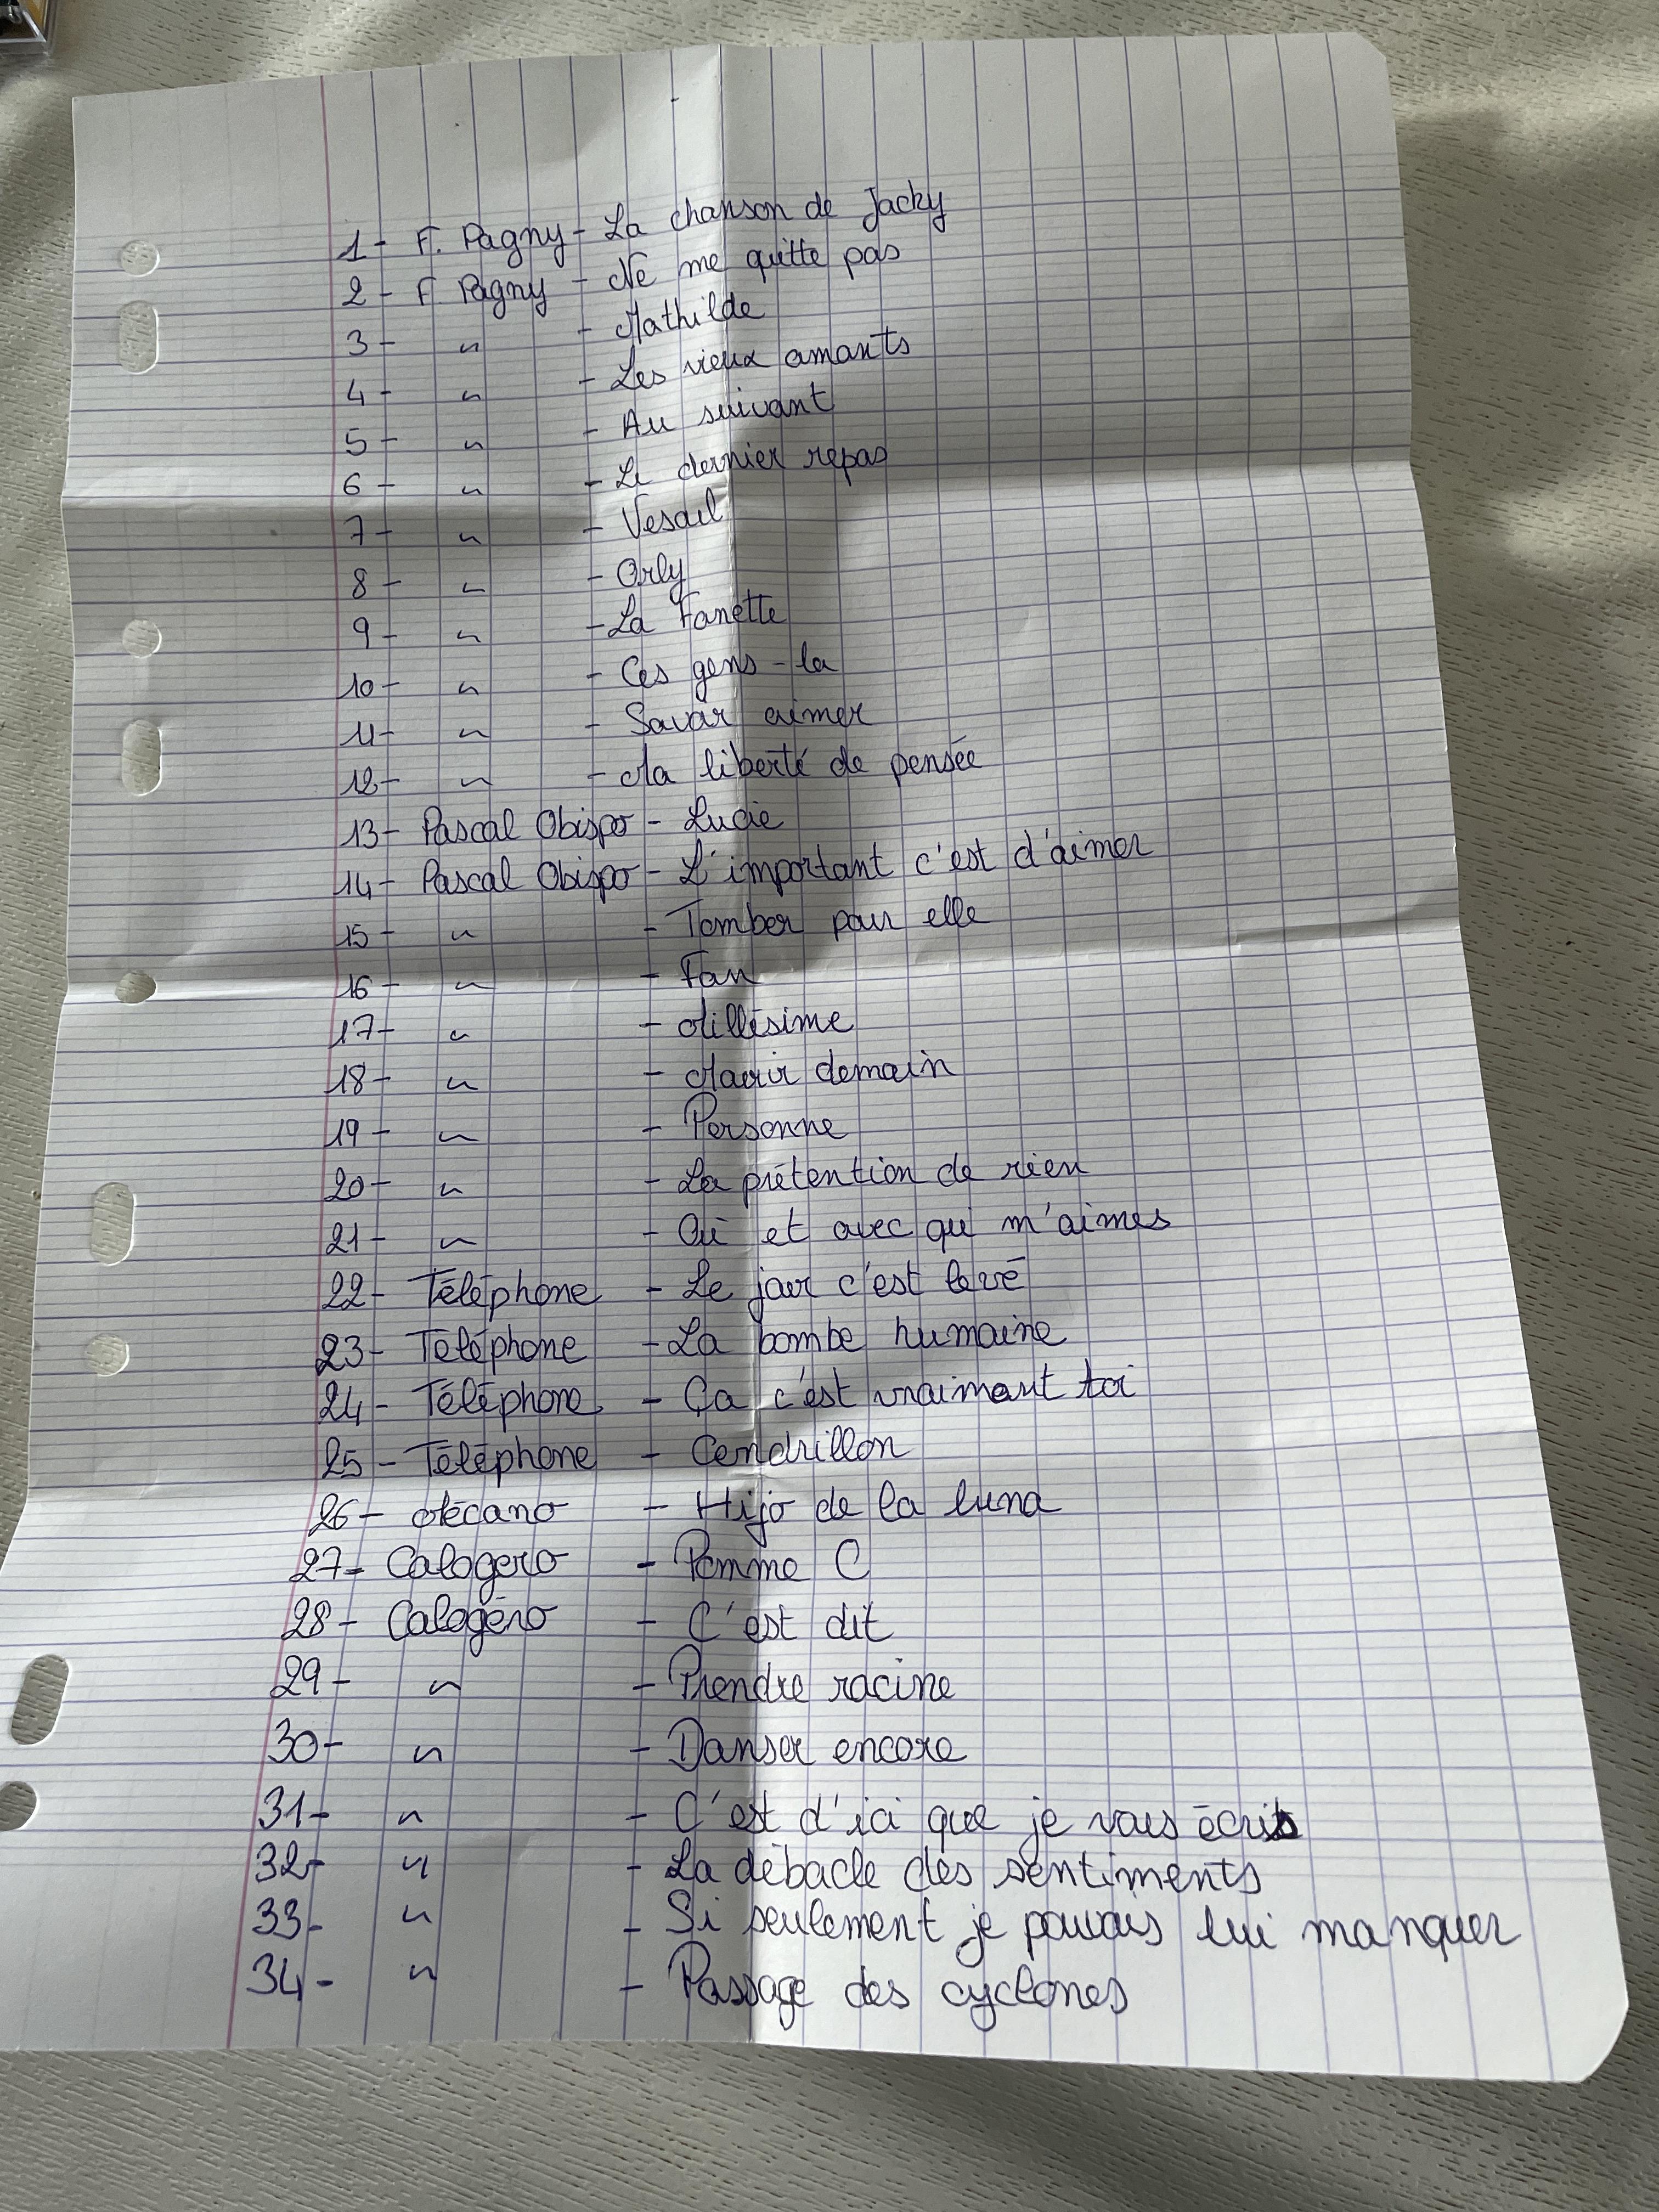 1- F. Pagny - La chanson de Jacky
2- F Pagny - Ne me quitte pas
3- " - Mathilde
4- " - Les vieux amants
5- " - Au suivant
6- " - Le dernier repas
7- " - Vesoul
8- " - Orly
9- " - La Fanette
10- " - Ces gens-la
11- " - Savoir aimer
12- " - Ma liberté de pensée
13- Pascal Obispo - Lucie
14- Pascal Obispo - L'important c'est d'aimer
15- " - Tomber pour elle
16- " - Fan
17- " - Millésime
18- " - Mourir demain
19- " - Personne
20- " - La prétention de rien
21- " - Où et avec qui m'aimes
22- Téléphone - Le jour c'est levé
23- Téléphone - La bombe humaine
24- Téléphone - Ça c'est vraiment toi
25- Téléphone - Cendrillon
26- Mécano - Hijo de la luna
27- Calogero - Pomme C
28- Calogéro - C'est dit
29- " - Prendre racine
30- " - Danser encore
31- " - C'est d'ici que je vous écris
32- " - La débacle des sentiments
33- " - Si seulement je pouvais lui manquer
34- " - Passage des cyclones